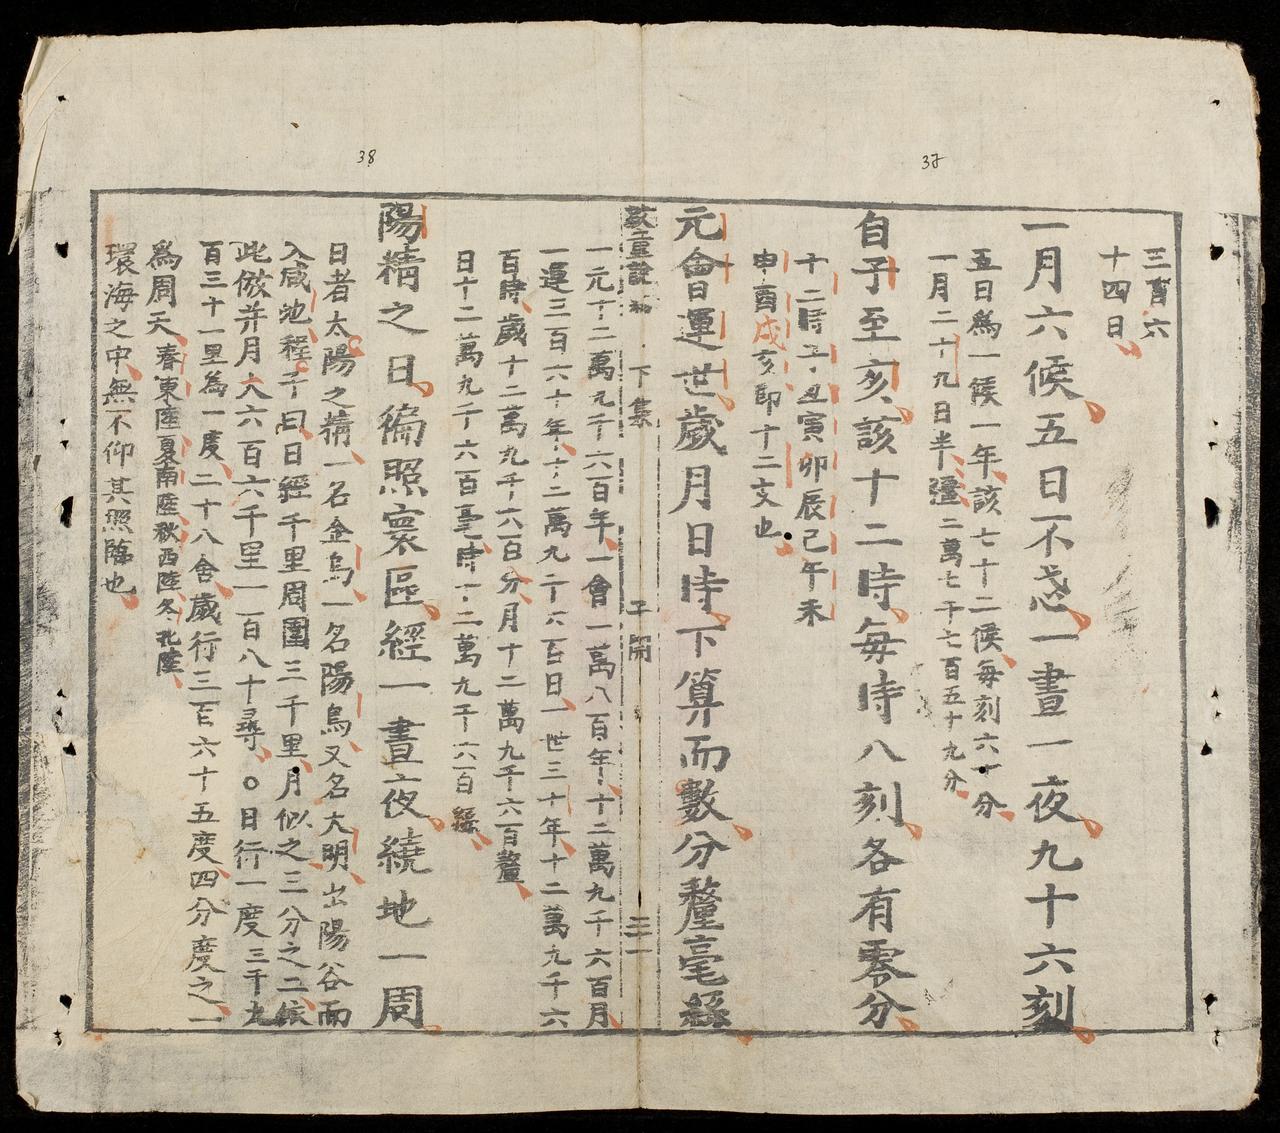 37
三百六
十四日
一月六候五日不忒一晝一夜九十六刻
五日爲一候一年該七十二候每刻六十分
一月二十九日半彊二萬七千七百五十九分
自子至亥該十二時每時八刻各有零分
十二時子丑寅卯辰巳午未
申酉戌亥卽十二支也
元會運世歲月日時下算而數分釐毫絲
一元十二萬九千六百年一會一萬八百年十二萬九千六百月
一運三百六十年十二萬九千六百日一世三十年十二萬九千六
百時歲十二萬九千六百分月十二萬九千六百釐
日十二萬九千六百毫時十二萬九千六百絲
啟童說約 下集 子開 三一
38
陽精之日徧照寰區經一晝夜繞地一周
日者太陽之精一名金烏一名陽烏又名大明出陽谷而
入咸池程子曰日經千里周圍三千里月似之三分之二
此倣并月大六百六千里一百八十尋○日行一度三千九
百三十一里為一度二十八舍歲行三百六十五度四分度之一
爲周天春東陸夏南陸秋西陸冬北陸
環海之中無不仰其照臨也